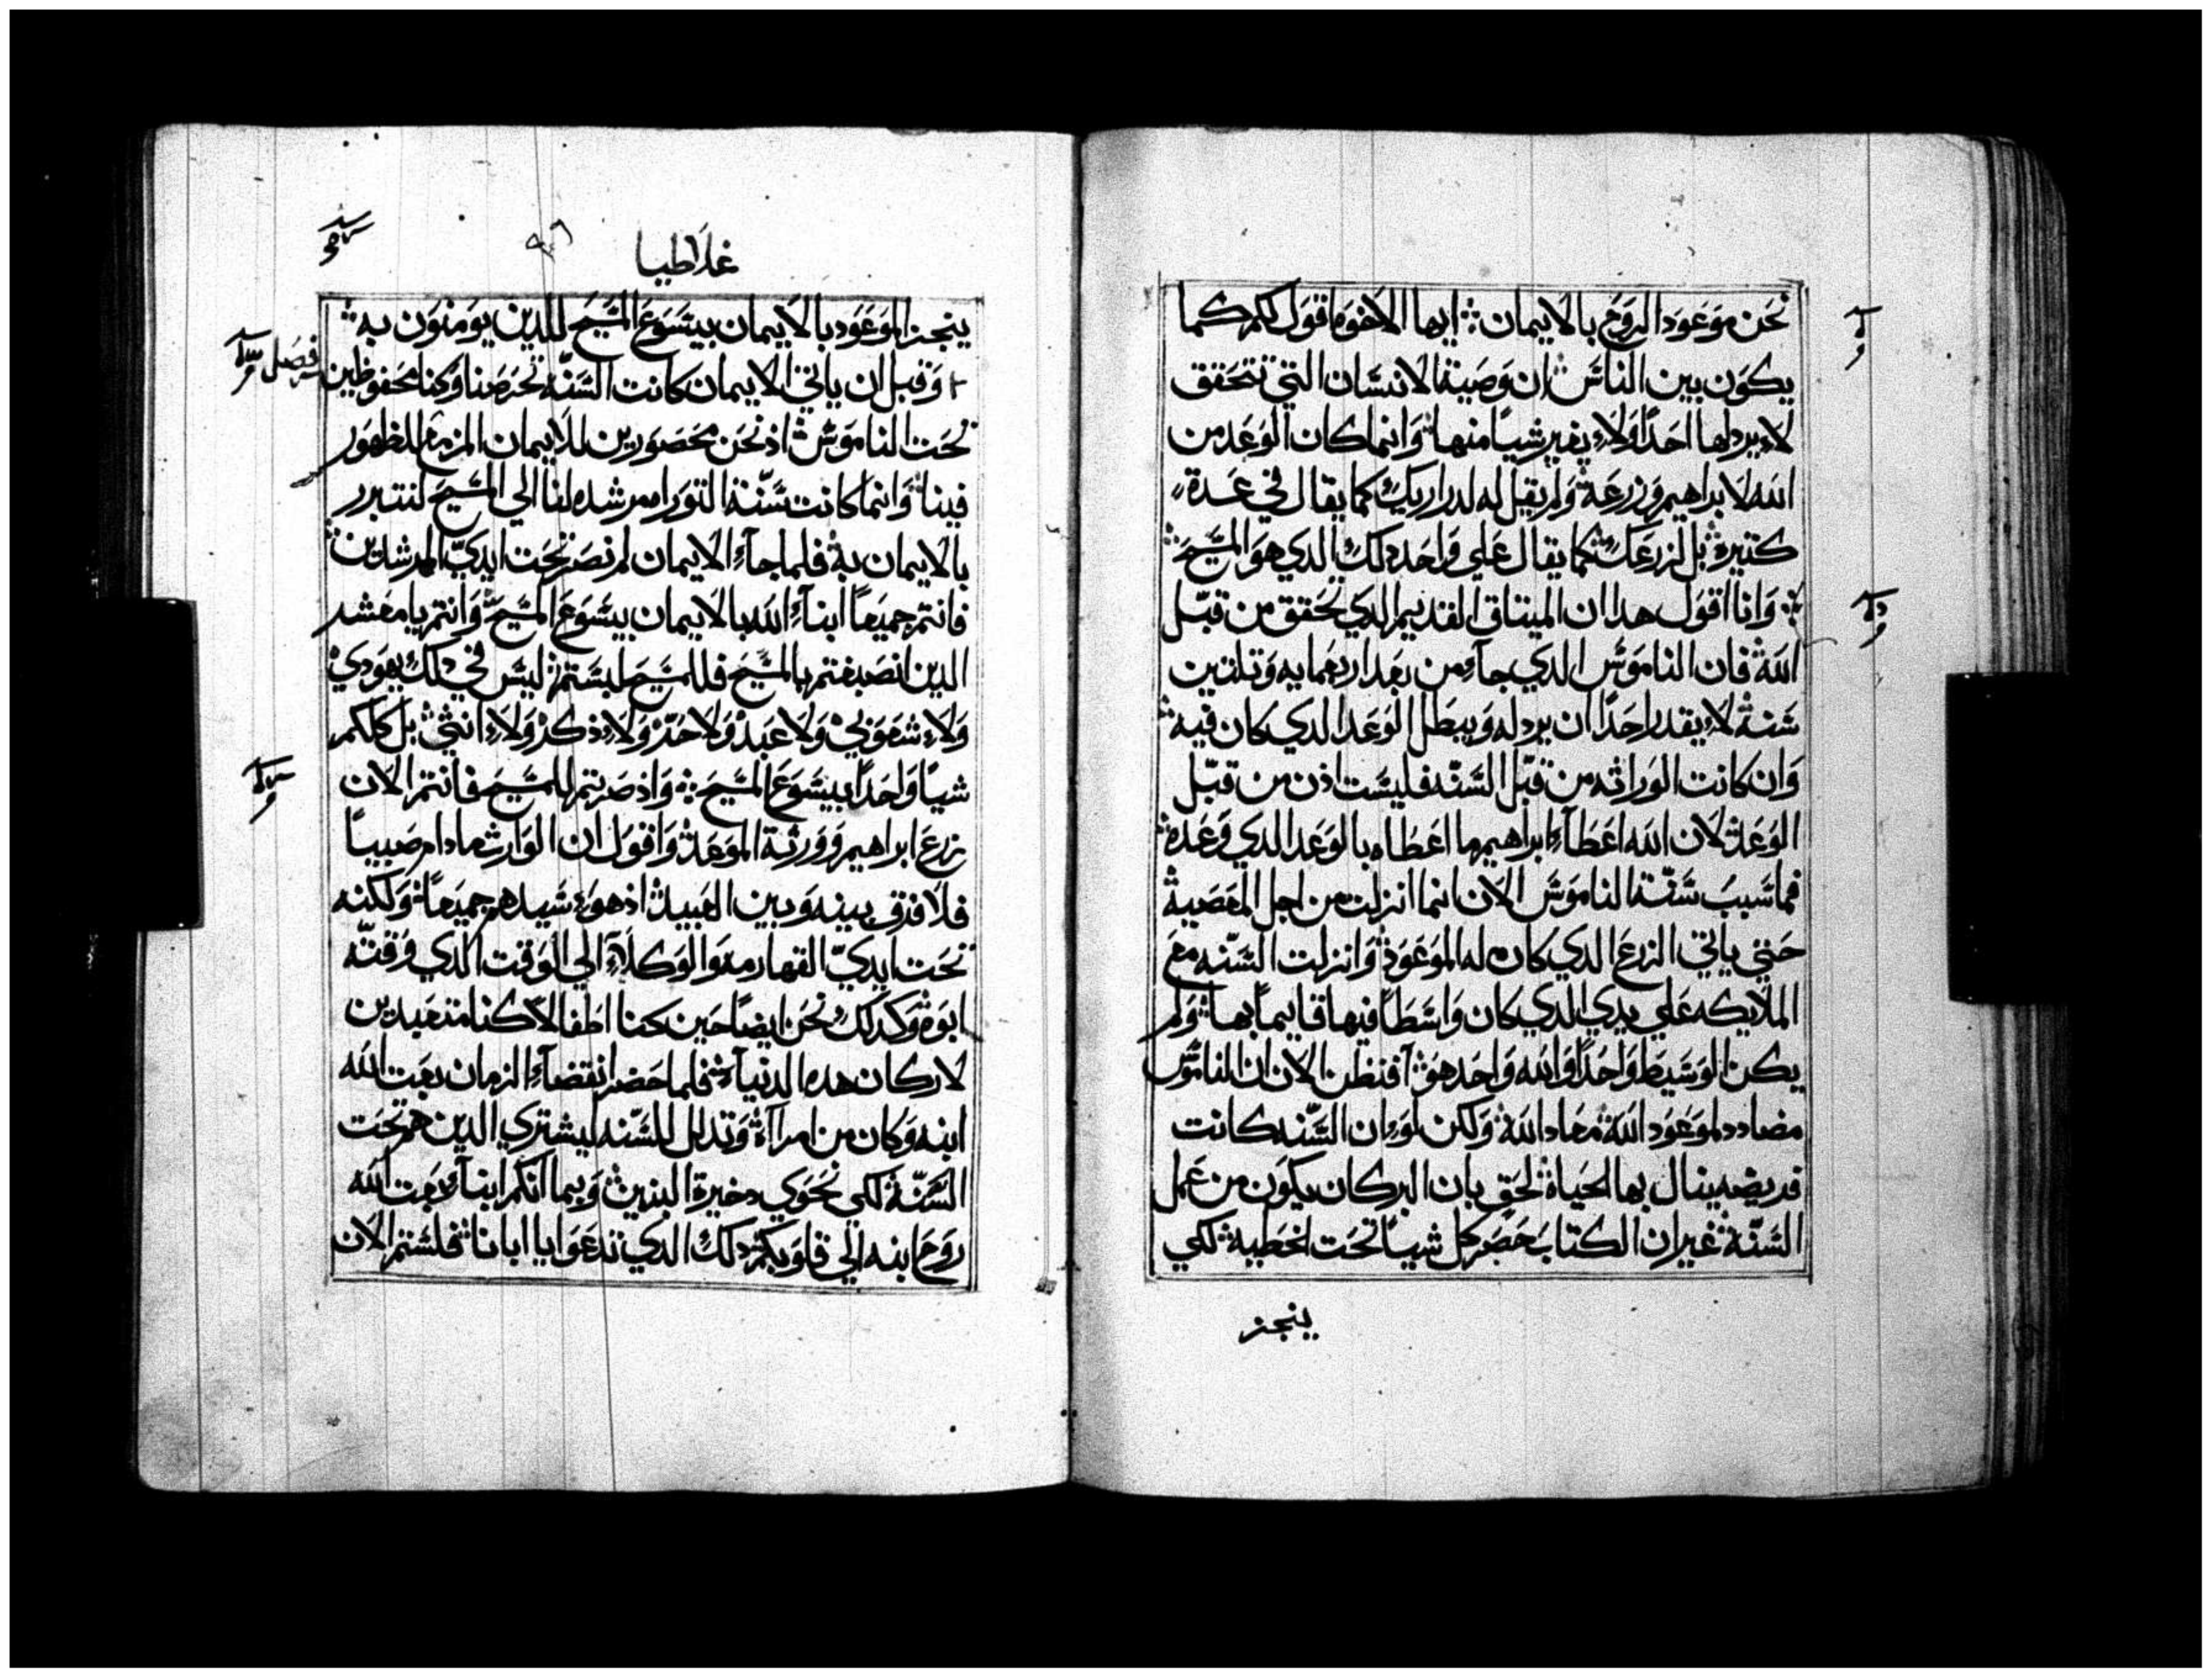 نحن موعود الروح بالايمان ايها الاخوه اقول لكم كما
يكون بين الناس ان وصية الانسان التي تتحقق
لا يردلها احدا ولا يغير شيا منها وانما كان الوعد من
الله لابراهيم وزرعه ولم يقل له لدراريك كما يقال في عدة
كتيره بل لزرعك كما يقال علي واحد دلك الدي هو المسيح
وانا اقول هدا ان الميتاق القديم الدي تحقق من قبل
الله فان الناموس الدي جاء من بعد اربعمايه وتلتين
سنه لا يقدر احدا ان يردله ويبطل الوعد الدي كان فيه
وان كانت الوراثه من قبل السنه فليست اذن من قبل
الوعد لان الله اعطاء ابراهيم ما اعطاه بالوعد الدي وعده
فما سبب سنة الناموس الان انما انزلت من اجل المعصية
حتي ياتي الزرع الدي كان له الموعود وانزلت السنه مع
الملايكه علي يدي الدي كان واسطا فيها قايما بها ولم
يكن الوسيط واحدا والله واحد هو افنظن الان ان الناموس
مضادد لموعود الله معاد الله ولكن لو ان السنه كانت
فريضه ينال بها الحياة لحق بان البر كان يكون من عمل
السنة غير ان الكتاب حصر كل شيا تحت الخطيه لكي
ينجز
غلاطيا
ينجز الموعود بالايمان بيسوع المسيح للدين يومنون به
فصل
وقبل ان ياتي الايمان كانت السنه تحرصنا وكنا محفوظين
تحت الناموس اذ نحن محصورين للايمان المزمع للظهور
فينا وانما كانت سنة التوراه مرشده لنا الي المسيح لنتبرر
بالايمان به فلما جاء الايمان لم نصر تحت ايدي المرشدين
فانتم جميعا ابناء الله بالايمان بيسوع المسيح وانتم يا معشر
الدين انصبغتم بالمسيح فللمسيح لبستم ليس في دلك يهودي
ولا شعوبي ولا عبد ولا حر ولا ذكر ولا انثي بل كلكم
شيا واحدا بيسوع المسيح واذ صرتم للمسيح فانتم الان
زرع ابراهيم وورثة الموعد واقول ان الوارث ما دام صبيا
فلا فرق بينه وبين العبيد اذ هو سيدهم جميعا ولكنه
تحت ايدي القهارمه والوكلاء الي الوقت الدي وقته
ابوه وكدلك نحن ايضا حين كنا اطفالا كنا متعبدين
لاركان هده الدنيا فلما حضر انقضاء الزمان بعت الله
ابنه وكان من امراة وتدلل للسنه ليشتري الدين هم تحت
السنة لكي نحوي دخيرة البنين وبما انكم ابناء بعت الله
روح ابنه الي قلوبكم دلك الدي تدعوا يا ابانا فلستم الان